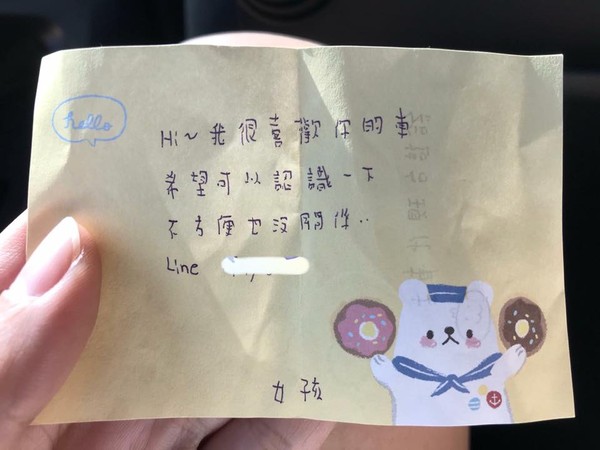 hello
Hi~我很喜歡你的車
希望可以認識一下
不方便也沒關係..
Line
女孩